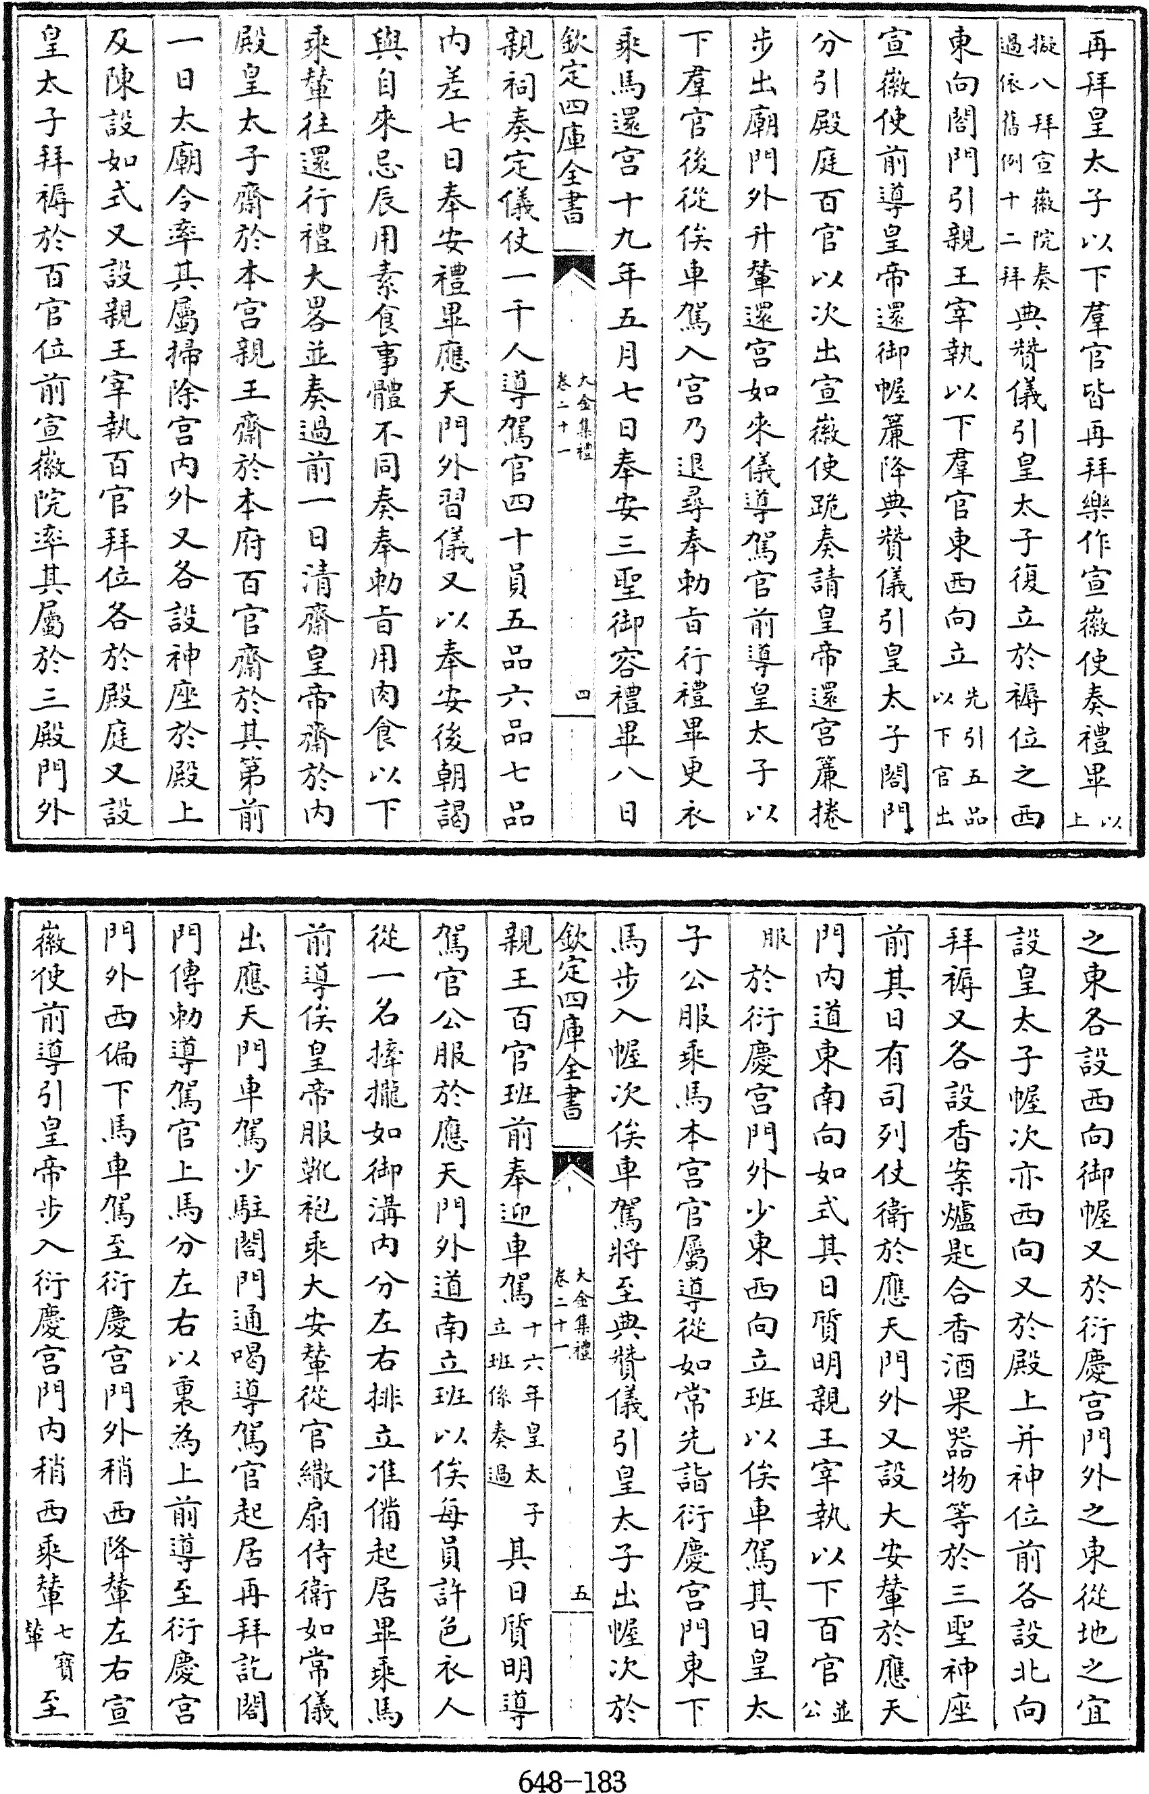 再拜皇太子以下羣官皆再拜樂作宣徽使奏禮畢以上
擬八拜宣徽院奏過依舊例十二拜典贊儀引皇太子復立於褥位之西
東向閤門引親王宰執以下羣官東西向立先引五品以下官出
宣徽使前導皇帝還御幄簾降典贊儀引皇太子閤門
分引殿庭百官以次出宣徽使跪奏請皇帝還宮簾捲
步出廟門外升輦還宮如來儀導駕官前導皇太子以
下羣官後從俟車駕入宮乃退尋奉勅旨行禮畢更衣
乘馬還宮十九年五月七日奉安三聖御容禮畢八日
欽定四庫全書 大金集禮卷二十一 四
親祠奏定儀仗一千人導駕官四十員五品六品七品
內差七日奉安禮畢應天門外習儀又以奉安後朝謁
與自來忌辰用素食事體不同奏奉勅旨用肉食以下
乘輦往還行禮大畧並奏過前一日清齋皇帝齋於內
殿皇太子齋於本宮親王齋於本府百官齋於其第前
一日太廟令率其屬掃除宮內外又各設神座於殿上
及陳設如式又設親王宰執百官拜位各於殿庭又設
皇太子拜褥於百官位前宣徽院率其屬於三殿門外
之東各設西向御幄又於衍慶宮門外之東從地之宜
設皇太子幄次亦西向又於殿上并神位前各設北向
拜褥又各設香案爐匙合香酒果器物等於三聖神座
前其日有司列仗衛於應天門外又設大安輦於應天
門內道東南向如式其日質明親王宰執以下百官並公
服於衍慶宮門外少東西向立班以俟車駕其日皇太
子公服乘馬本宮官屬導從如常先詣衍慶宮門東下
馬步入幄次俟車駕將至典贊儀引皇太子出幄次於
欽定四庫全書 大金集禮卷二十一 五
親王百官班前奉迎車駕十六年皇太子立班係奏過其日質明導
駕官公服於應天門外道南立班以俟每員許色衣人
從一名擡攏如御溝內分左右排立准備起居畢乘馬
前導俟皇帝服靴袍乘大安輦從官繖扇侍衛如常儀
出應天門車駕少駐閤門通喝導駕官起居再拜訖閤
門傳勅導駕官上馬分左右以裏為上前導至衍慶宮
門外西偏下馬車駕至衍慶宮門外稍西降輦左右宣
徽使前導引皇帝步入衍慶宮門內稍西乘輦七寶輦至
648-183